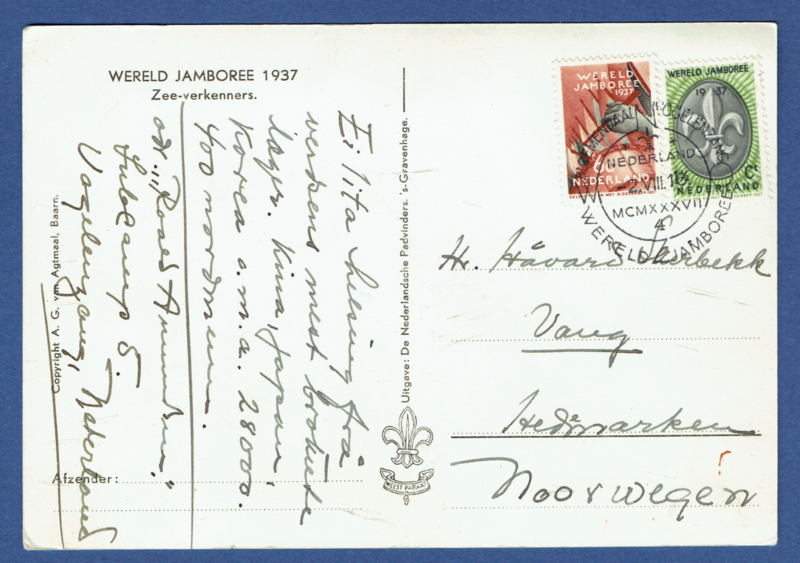 WERELD JAMBOREE 1937
Zee-verkenners.
Ei lita helsing frå
verdens mest brokete
lager. Kina, Japan,
Korea o.m.a. 28000.
400 nordmenn.
"Roald Amundsen"
Subcamp 5.
Vogelenzang, Nederland
Afzender:
Copyright A. G. van Agtmaal, Baarn.
Uitgave: De Nederlandsche Padvinders. 's-Gravenhage.
WEEST PARAAT
WERELD
JAMBOREE
1937
6c
NEDERLAND
WERELD JAMBOREE
1937
NEDERLAND
VOGELENZANG
NEDERLAND
-2.VIII.
MCMXXXVII
4
WERELD JAMBOREE
Hr. Håvard Skerbekk
Vang
Hedmarken
Noorwegen